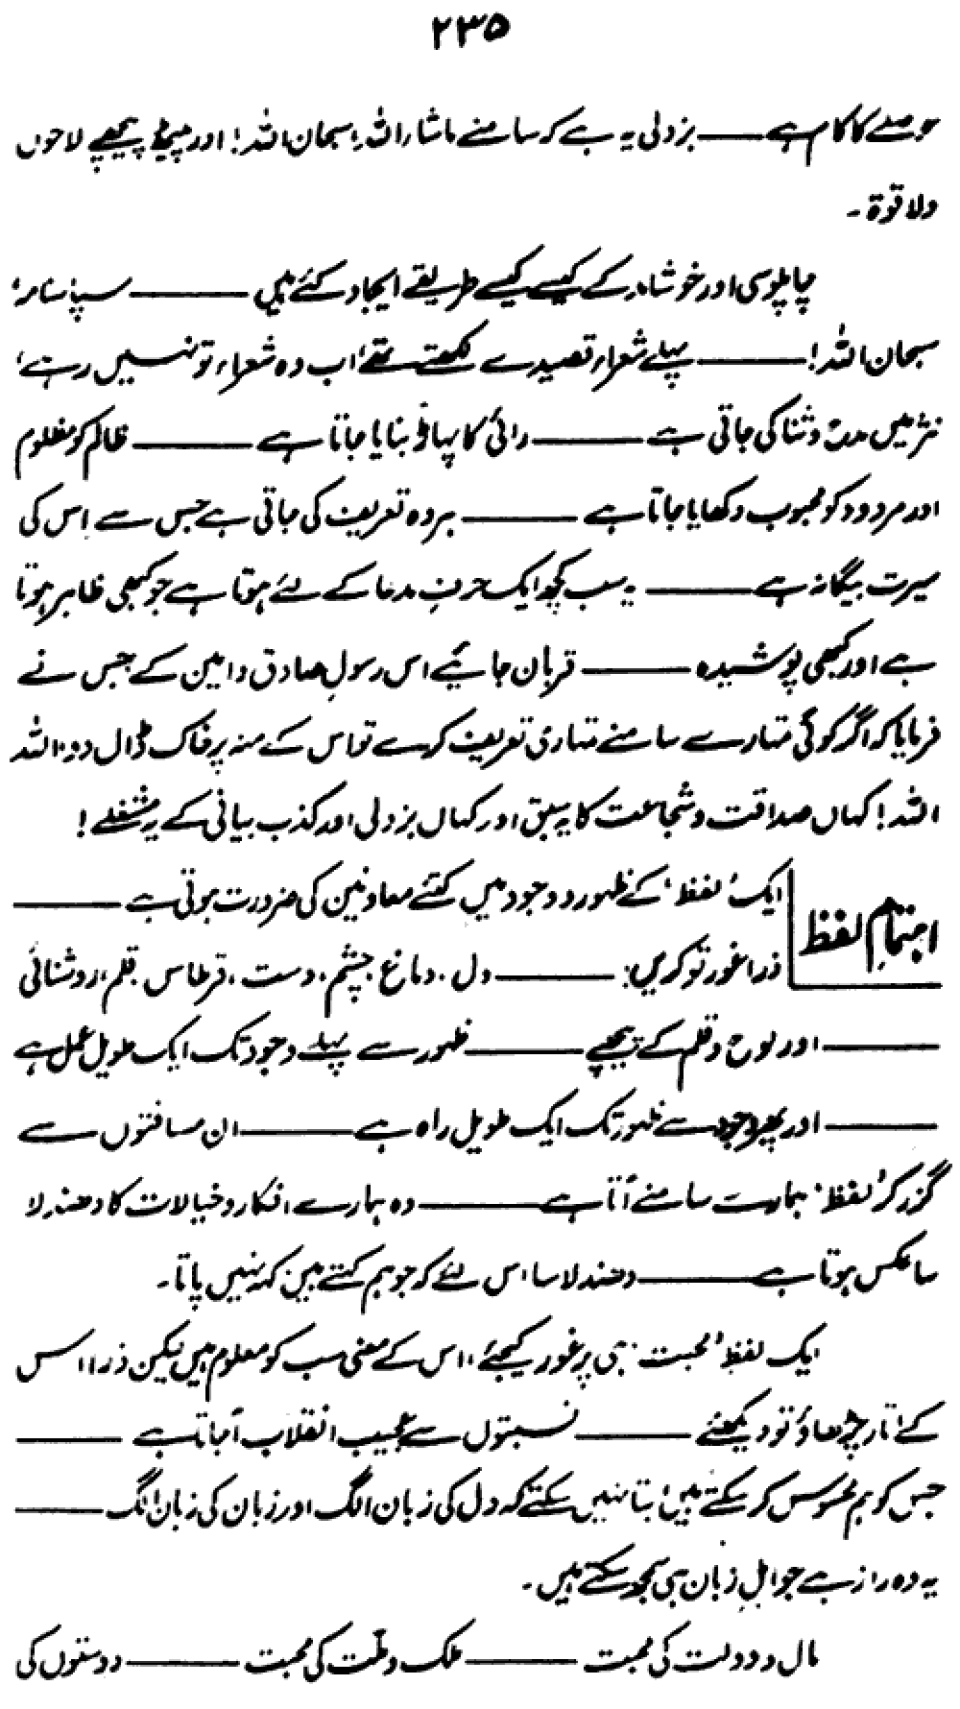 ۲۳۵
حوصلے کا کام ہے ——— بزدلی یہ ہے کہ سامنے ماشاءاللہ! سبحان اللہ! اور پیٹھ پیچھے لاحول
ولا قوۃ۔
چاپلوسی اور خوشامد کے کیسے کیسے طریقے ایجاد کئے ہیں ——— سپاسنامہ!
سبحان اللہ! ——— پہلے شعراء قصیدے لکھتے تھے، اب وہ شعراء تو نہیں رہے،
نثر میں مدح و ثنا کی جاتی ہے ——— رائی کا پہاڑ بنایا جاتا ہے ——— ظالم کو مظلوم
اور مردود کو محبوب دکھایا جاتا ہے ——— ہر وہ تعریف کی جاتی ہے جس سے اِس کی
سیرت بیگانہ ہے ——— یہ سب کچھ ایک حرفِ مدعا کے لئے ہوتا ہے جو کبھی ظاہر ہوتا
ہے اور کبھی پوشیدہ ——— قربان جائیے اس رسولِ صادق و امین کے جس نے
فرمایا کہ اگر کوئی تمہارے سامنے تمہاری تعریف کرے تو اس کے منہ پر خاک ڈال دو، اللہ
اللہ! کہاں صداقت و شجاعت کا یہ سبق اور کہاں بزدلی اور کذب بیانی کے یہ مشغلے!
اہتمامِ لفظ
ایک 'لفظ' کے ظہور و وجود میں کتنے معاونین کی ضرورت ہوتی ہے ———
ذرا غور تو کریں: ——— دل، دماغ، چشم، دست، قرطاس، قلم، روشنائی
——— اور لوح و قلم کے پیچھے ——— ظہور سے پہلے وجود تک ایک طویل عمل ہے
——— اور پھر وجود سے ظہور تک ایک طویل راہ ہے ——— ان مسافتوں سے
گزر کر 'لفظ' ہمارے سامنے آتا ہے ——— وہ ہمارے افکار و خیالات کا دھندلا
سا عکس ہوتا ہے ——— دھندلا سا اس لئے کہ جو ہم کہتے ہیں کہہ نہیں پاتا۔
ایک لفظ 'محبت' ہی پر غور کیجئے، اس کے معنی سب کو معلوم ہیں لیکن ذرا اس
کے اُتار چڑھاؤ تو دیکھئے ——— نسبتوں سے عجیب انقلاب آجاتا ہے ———
جس کو ہم محسوس کر سکتے ہیں، بتا نہیں سکتے کہ دل کی زبان الگ اور زبان کی زبان الگ ———
یہ وہ راز ہے جو اہلِ زبان ہی سمجھ سکتے ہیں۔
مال و دولت کی محبت ——— ملک و ملّت کی محبت ——— دوستوں کی